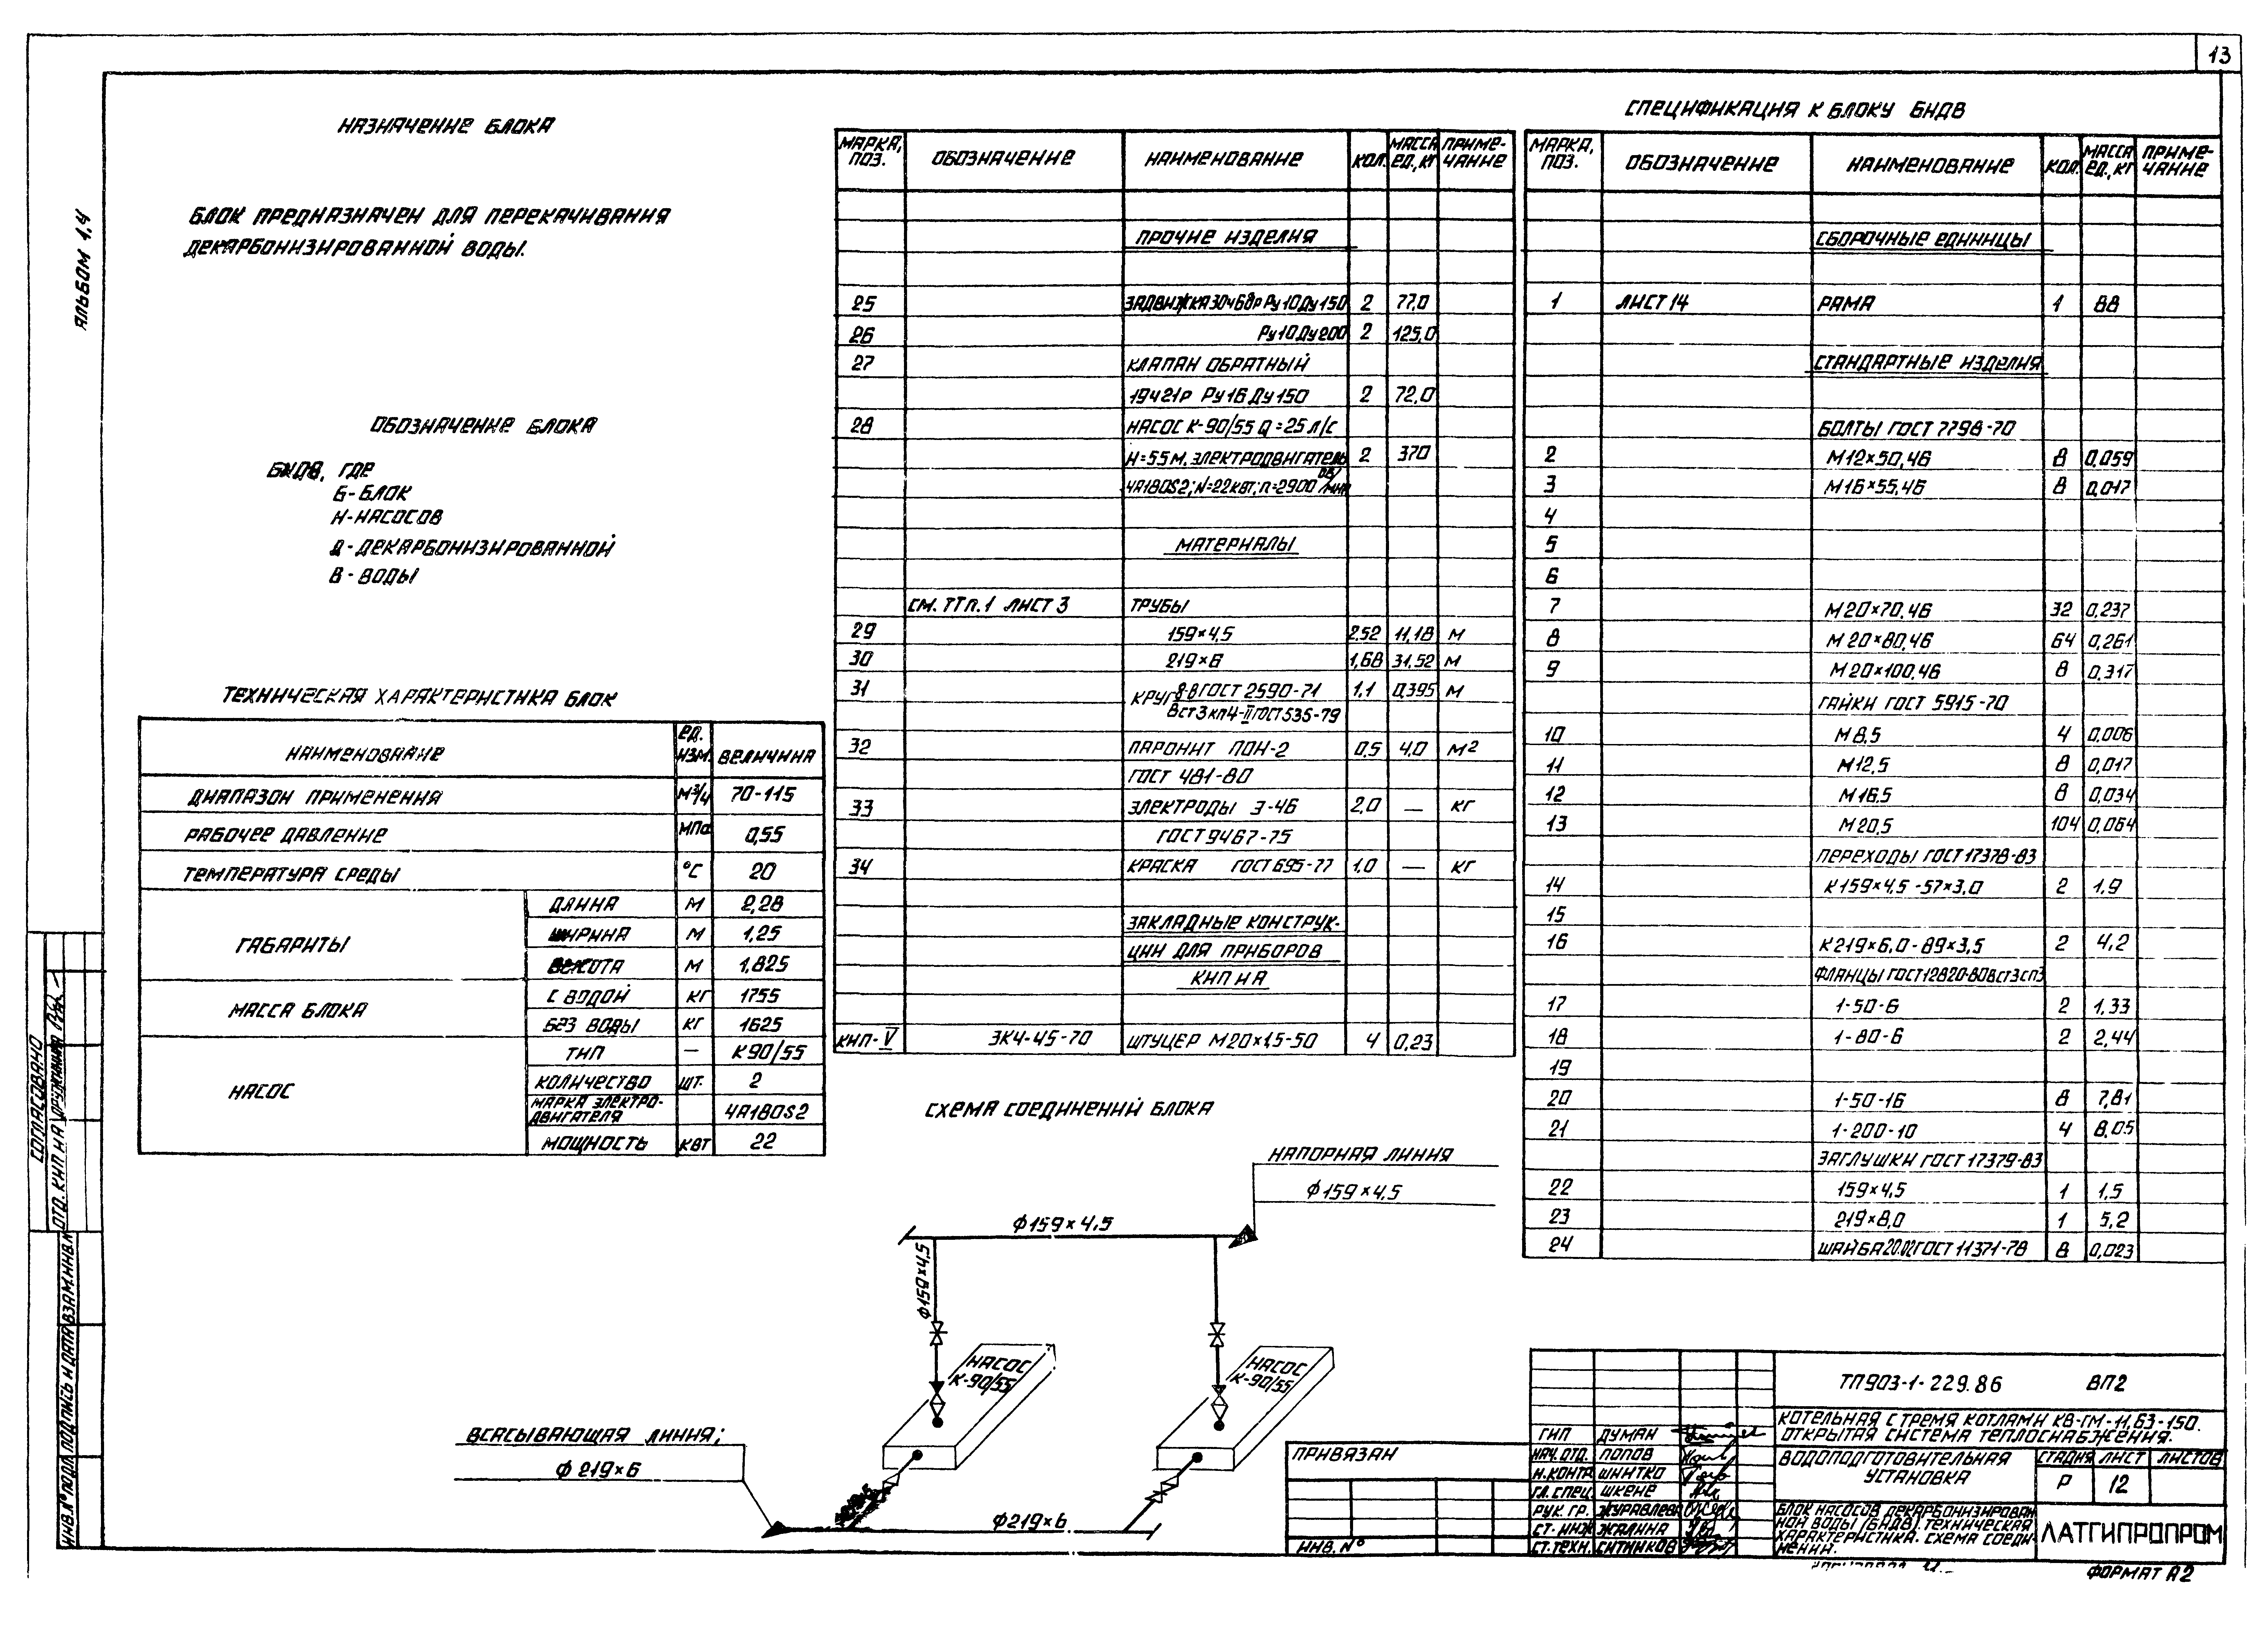 13
АЛЬБОМ 1,4
НАЗНАЧЕНИЕ БЛОКА
БЛОК ПРЕДНАЗНАЧЕН ДЛЯ ПЕРЕКАЧИВАНИЯ
ДЕКАРБОНИЗИРОВАННОЙ ВОДЫ.
ОБОЗНАЧЕНИЕ БЛОКА
БНДВ, ГДЕ
Б-БЛОК
Н-НАСОСОВ
Д-ДЕКАРБОНИЗИРОВАННОЙ
В-ВОДЫ
ТЕХНИЧЕСКАЯ ХАРАКТЕРИСТИКА БЛОК
НАИМЕНОВАНИЕ ЕД. ИЗМ. ВЕЛИЧИНА
ДИАПАЗОН ПРИМЕНЕНИЯ М³/Ч 70-115
РАБОЧЕЕ ДАВЛЕНИЕ МПа 0,55
ТЕМПЕРАТУРА СРЕДЫ °С 20
ГАБАРИТЫ ДЛИНА М 2,28
ШИРИНА М 1,25
ВЫСОТА М 1,825
МАССА БЛОКА С ВОДОЙ КГ 1755
БЕЗ ВОДЫ КГ 1625
НАСОС ТИП — К90/55
КОЛИЧЕСТВО ШТ. 2
МАРКА ЭЛЕКТРО-
ДВИГАТЕЛЯ 4А180S2
МОЩНОСТЬ КВТ 22
МАРКА, ПОЗ. ОБОЗНАЧЕНИЕ НАИМЕНОВАНИЕ КОЛ. МАССА ЕД., КГ ПРИМЕ-ЧАНИЕ
ПРОЧИЕ ИЗДЕЛИЯ
25 ЗАДВИЖКА 30ч6бр Ру10 Ду150 2 77,0
26 Ру10 Ду200 2 125,0
27 КЛАПАН ОБРАТНЫЙ
19ч21р Ру16 Ду150 2 72,0
28 НАСОС К-90/55 Q=25 л/с
Н=55 м, ЭЛЕКТРОДВИГАТЕЛЬ 2 370
4А180S2; N=22квт, n=2900 об/мин
МАТЕРИАЛЫ
СМ. ТТ п.1 ЛИСТ 3 ТРУБЫ
29 159×4,5 2,52 11,18 М
30 219×6 1,68 31,52 М
31 КРУГ 8-В ГОСТ 2590-71 1,1 0,395 М
Вст3кп4-II ГОСТ 535-79
32 ПАРОНИТ ПОН-2 0,5 4,0 М²
ГОСТ 481-80
33 ЭЛЕКТРОДЫ Э-46 2,0 — КГ
ГОСТ 9467-75
34 КРАСКА ГОСТ 695-77 1,0 — КГ
ЗАКЛАДНЫЕ КОНСТРУК-
ЦИИ ДЛЯ ПРИБОРОВ
КИП И А
КИП-V ЗК4-45-70 ШТУЦЕР М20×1,5-50 4 0,23
СПЕЦИФИКАЦИЯ К БЛОКУ БНДВ
МАРКА, ПОЗ. ОБОЗНАЧЕНИЕ НАИМЕНОВАНИЕ КОЛ. МАССА ЕД., КГ ПРИМЕ-ЧАНИЕ
СБОРОЧНЫЕ ЕДИНИЦЫ
1 ЛИСТ 14 РАМА 1 88
СТАНДАРТНЫЕ ИЗДЕЛИЯ
БОЛТЫ ГОСТ 7798-70
2 М12×50,46 8 0,059
3 М16×55,46 8 0,017
4
5
6
7 М20×70,46 32 0,237
8 М20×80,46 64 0,261
9 М20×100,46 8 0,317
ГАЙКИ ГОСТ 5915-70
10 М8,5 4 0,006
11 М12,5 8 0,017
12 М16,5 8 0,034
13 М20,5 104 0,064
ПЕРЕХОДЫ ГОСТ 17378-83
14 К159×4,5-57×3,0 2 1,9
15
16 К219×6,0-89×3,5 2 4,2
ФЛАНЦЫ ГОСТ 12820-80 Вст3сп3
17 1-50-6 2 1,33
18 1-80-6 2 2,44
19
20 1-50-16 8 7,81
21 1-200-10 4 8,05
ЗАГЛУШКИ ГОСТ 17379-83
22 159×4,5 1 1,5
23 219×8,0 1 5,2
24 ШАЙБА 20.02 ГОСТ 11371-78 8 0,023
СХЕМА СОЕДИНЕНИЙ БЛОКА
НАПОРНАЯ ЛИНИЯ
Ф159×4,5
Ф159×4,5
Ф159×4,5
НАСОС
К-90/55
НАСОС
К-90/55
ВСАСЫВАЮЩАЯ ЛИНИЯ;
Ф219×6
Ф219×6
СОГЛАСОВАНО
ОТД. КИП И А ДРУЖИНИН
ИНВ.№ ПОДЛ. ПОДПИСЬ И ДАТА ВЗАМ.ИНВ.№
ПРИВЯЗАН
ИНВ. №
ГИП ДУМАН
НАЧ.ОТД. ПОПОВ
Н.КОНТР ШНИТКО
ГЛ.СПЕЦ. ШКЕНЕ
РУК. ГР. ЖУРАВЛЕВА
СТ. ИНЖ ЖАЛИНА
СТ.ТЕХН. СИТНИКОВ
ТП903-1-229.86 ВП2
КОТЕЛЬНАЯ С ТРЕМЯ КОТЛАМИ КВ-ГМ-11,63-150.
ОТКРЫТАЯ СИСТЕМА ТЕПЛОСНАБЖЕНИЯ.
ВОДОПОДГОТОВИТЕЛЬНАЯ
УСТАНОВКА
СТАДИЯ ЛИСТ ЛИСТОВ
Р 12
БЛОК НАСОСОВ ДЕКАРБОНИЗИРОВАН
НОЙ ВОДЫ (БНДВ). ТЕХНИЧЕСКАЯ
ХАРАКТЕРИСТИКА. СХЕМА СОЕДИ-
НЕНИЙ.
ЛАТГИПРОПРОМ
ФОРМАТ А2